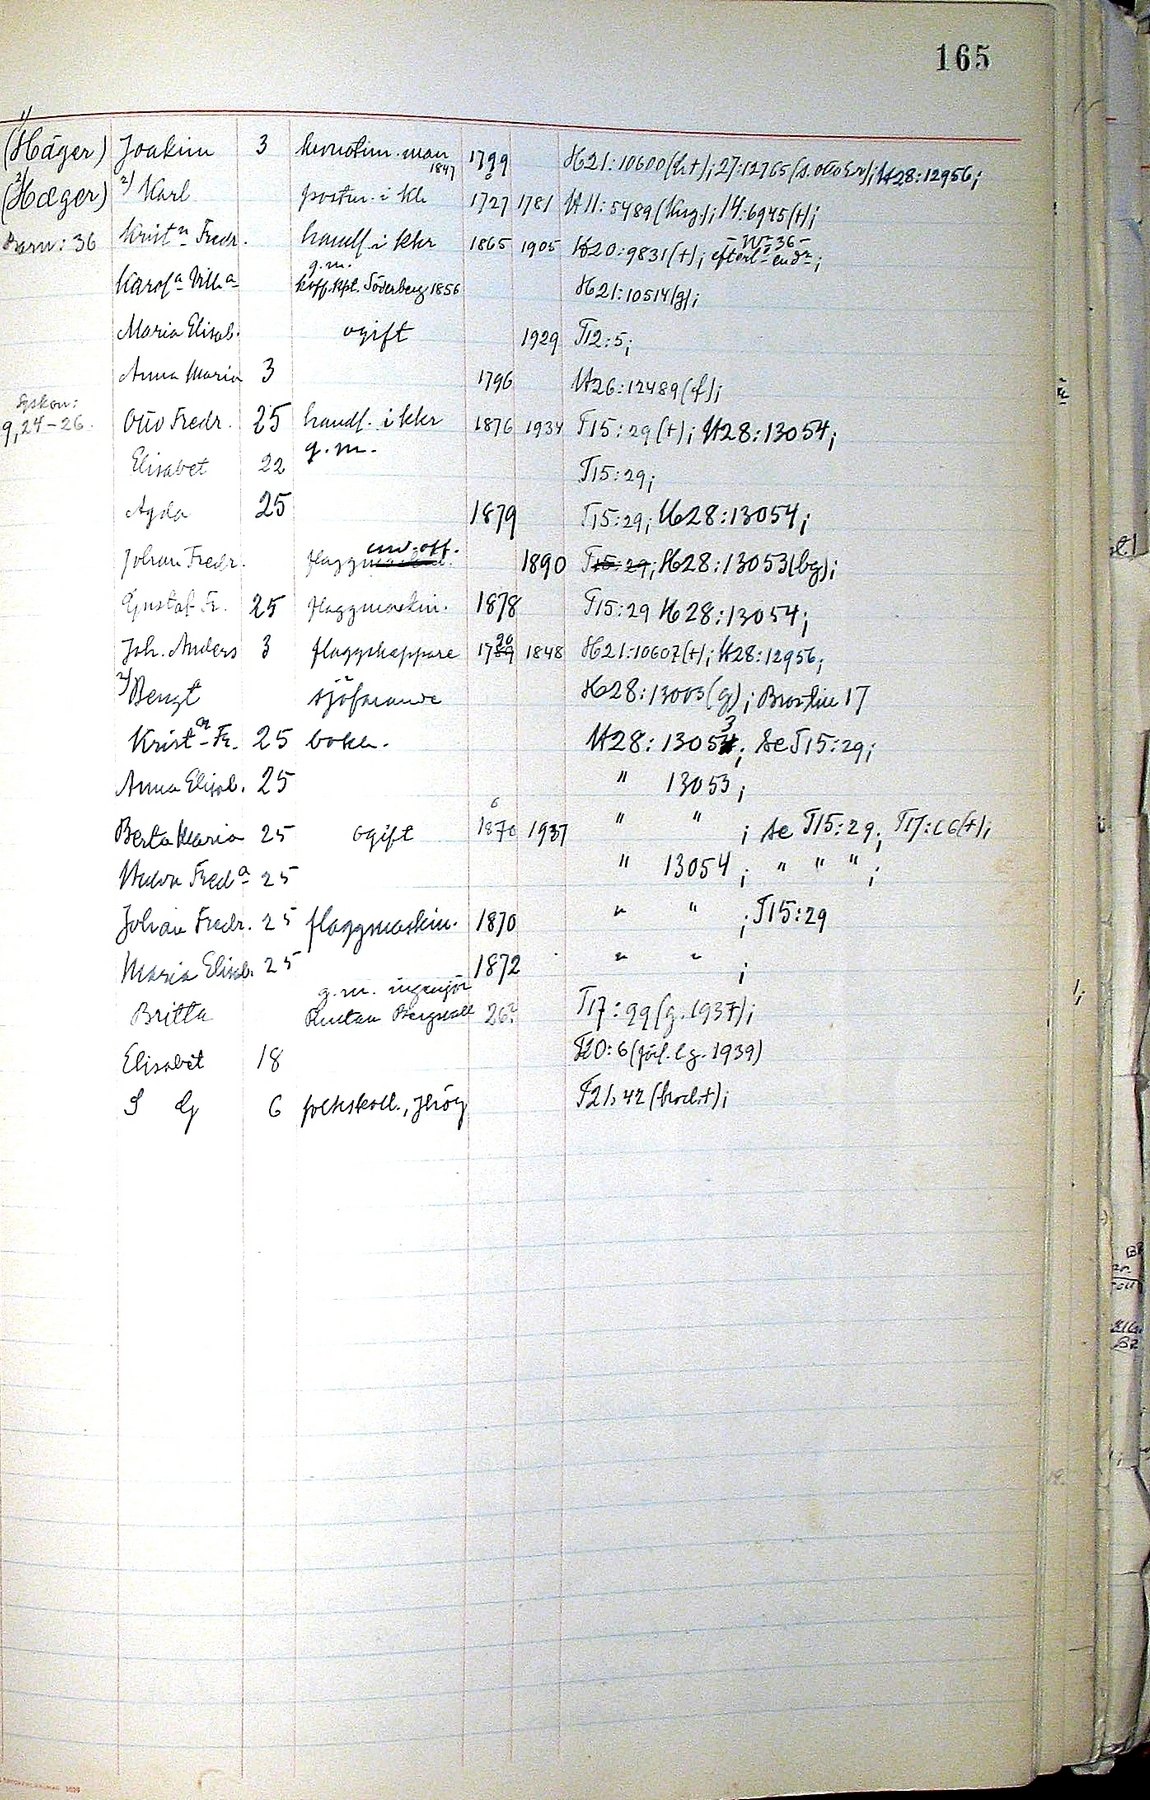 165
1) (Häger) Joakim 3 kronolim. man 1847 1799 H21:10600 (h.+); 27:12765 H28:12956;
2) (Hæger) 2) Karl postm. i Kh 1727 1781 H11:5489 14:6945 (+);
Barn: 36 Kristn Fredr. handl. i kkr 1865 1905 H20:9831 (+); efterl-endr; -Nr 36-
Karola Villa g.m. koff.kpt. Söderberg 1856 H21:10514 (g);
Maria Elisab. ogift 1929 T12:5;
Anna Maria 3 1796 H26:12489 (f);
Syskon: 9, 24-26. Otto Fredr. 25 handl. i kkr 1876 1934 T15:29 (+); H28:13054;
Elisabet 22 g.m. T15:29;
Agda 25 1879 T15:29; H28:13054;
Johan Fredr. und.off. 1890 T15:29; H28:13053 (bg);
Gustaf Fr. 25 flaggmaskin. 1878 T15:29 H28:13054;
Joh. Anders 3 flaggskeppare 1789 90 1848 H21:10607 (+); H28:12956;
2) Bengt sjöfarande H28:13003 (g); 17
Kristan Fr. 25 bokh. H28:13053; Se T15:29;
Anna Elisab. 25 " 13053;
Berta Maria 25 ogift 1870 6 1937 " " ; se T15:29; T17:66 (+);
Freda 25 " 13054; " " " ;
Johan Fredr. 25 flaggmaskin. 1870 " " ; T15:29
Maria Elisab. 25 1872 " " ;
Britta g.m. ingenjör Bergwall 26? T17:99 (g. 1937);
Elisabet 18 T20:6 (förl. e.g. 1939)
S G 6 folkskoll., T21:42